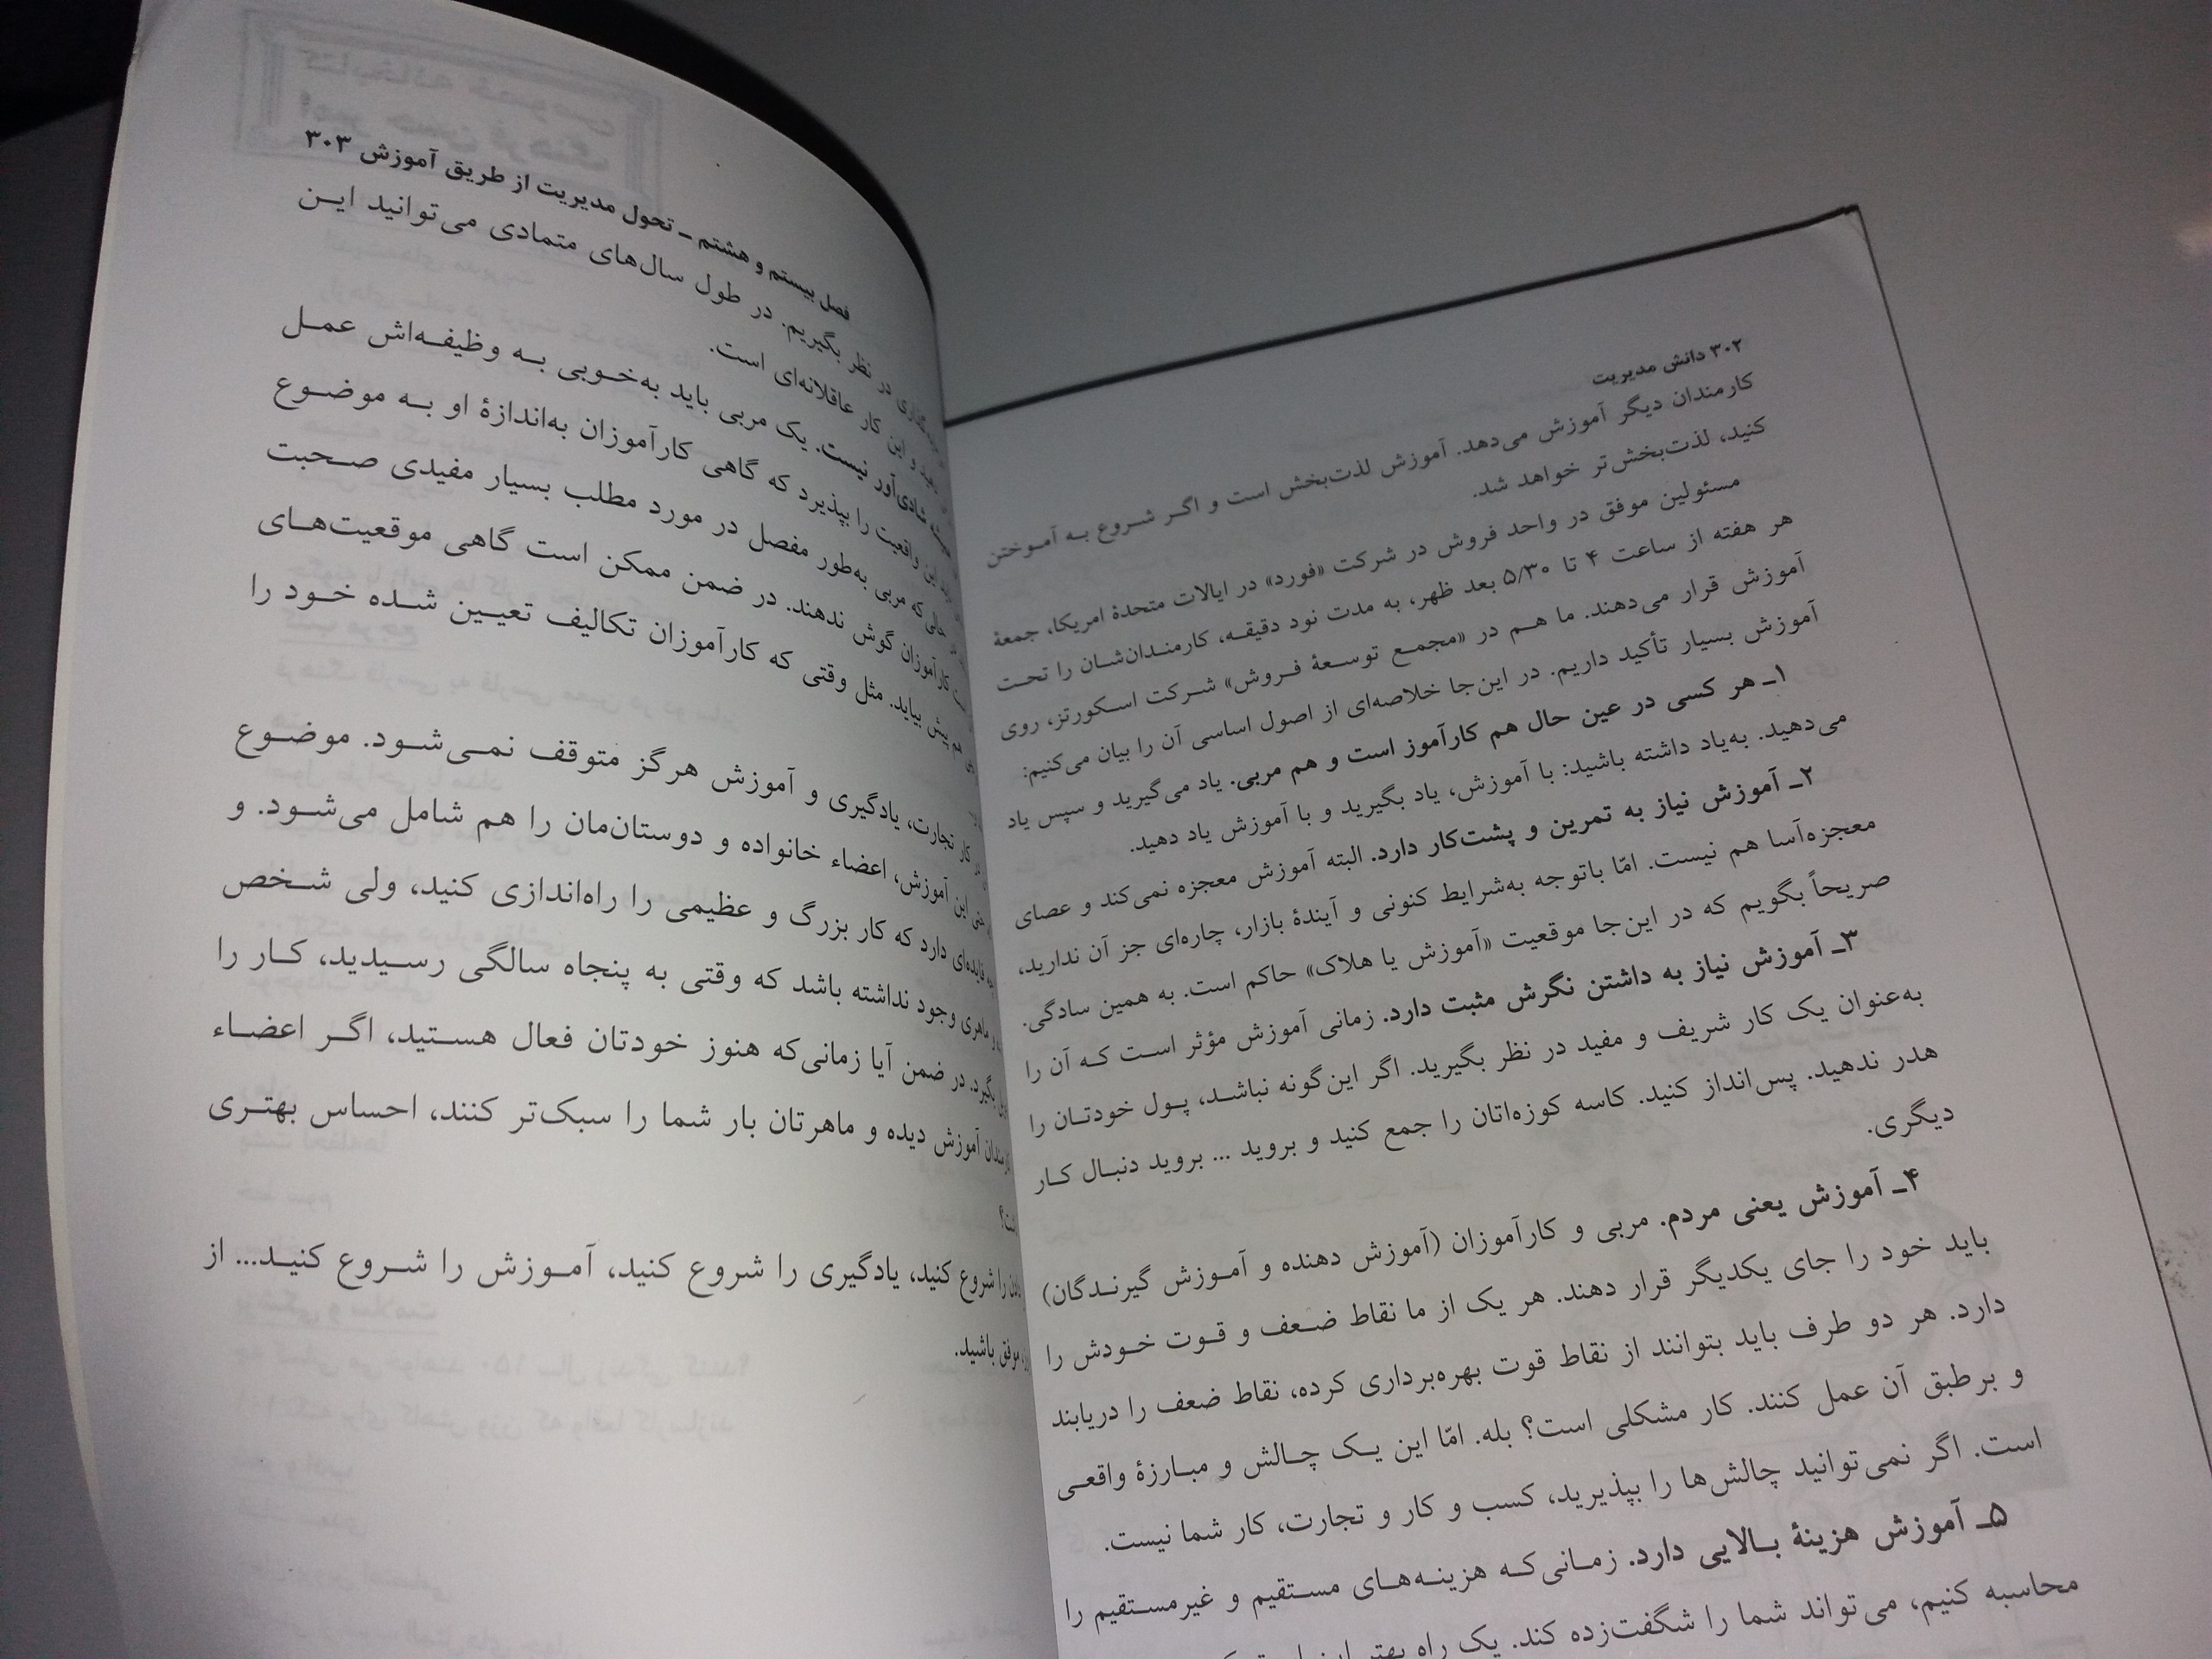 ۳۰۲ دانش مدیریت
کارمندان دیگر آموزش می‌دهد. آموزش لذت‌بخش است و اگر شروع به آموختن
کنید، لذت‌بخش‌تر خواهد شد.
مسئولین موفق در واحد فروش در شرکت «فورد» در ایالات متحدهٔ امریکا، جمعهٔ
هر هفته از ساعت ۴ تا ۵/۳۰ بعد ظهر، به مدت نود دقیقه، کارمندان‌شان را تحت
آموزش قرار می‌دهند. ما هم در «مجمع توسعهٔ فروش» شرکت اسکورتز، روی
آموزش بسیار تأکید داریم. در این‌جا خلاصه‌ای از اصول اساسی آن را بیان می‌کنیم:
۱ـ هر کسی در عین حال هم کارآموز است و هم مربی. یاد می‌گیرید و سپس یاد
می‌دهید. به‌یاد داشته باشید: با آموزش، یاد بگیرید و با آموزش یاد دهید.
۲ـ آموزش نیاز به تمرین و پشت‌کار دارد. البته آموزش معجزه نمی‌کند و عصای
معجزه‌آسا هم نیست. امّا باتوجه به‌شرایط کنونی و آیندهٔ بازار، چاره‌ای جز آن ندارید،
صریحاً بگویم که در این‌جا موقعیت «آموزش یا هلاک» حاکم است. به همین سادگی.
۳ـ آموزش نیاز به داشتن نگرش مثبت دارد. زمانی آموزش مؤثر است که آن را
به‌عنوان یک کار شریف و مفید در نظر بگیرید. اگر این‌گونه نباشد، پول خودتان را
هدر ندهید. پس‌انداز کنید. کاسه کوزه‌اتان را جمع کنید و بروید ... بروید دنبال کار
دیگری.
۴ـ آموزش یعنی مردم. مربی و کارآموزان (آموزش دهنده و آموزش گیرندگان)
باید خود را جای یکدیگر قرار دهند. هر یک از ما نقاط ضعف و قوت خودش را
دارد. هر دو طرف باید بتوانند از نقاط قوت بهره‌برداری کرده، نقاط ضعف را دریابند
و برطبق آن عمل کنند. کار مشکلی است؟ بله. امّا این یک چالش و مبارزهٔ واقعی
است. اگر نمی‌توانید چالش‌ها را بپذیرید، کسب و کار و تجارت، کار شما نیست.
۵ـ آموزش هزینهٔ بالایی دارد. زمانی‌که هزینه‌های مستقیم و غیرمستقیم را
محاسبه کنیم، می‌تواند شما را شگفت‌زده کند. یک راه بهتر
فصل بیستم و هشتم ـ تحول مدیریت از طریق آموزش ۳۰۳
در نظر بگیریم. در طول سال‌های متمادی می‌توانید این
و این کار عاقلانه‌ای است.
شادی‌آور نیست. یک مربی باید به‌خوبی به وظیفه‌اش عمل
این واقعیت را بپذیرد که گاهی کارآموزان به‌اندازهٔ او به موضوع
حالی که مربی به‌طور مفصل در مورد مطلب بسیار مفیدی صحبت
کارآموزان گوش ندهند. در ضمن ممکن است گاهی موقعیت‌های
هم پیش بیاید. مثل وقتی که کارآموزان تکالیف تعیین شده خود را
کار تجارت، یادگیری و آموزش هرگز متوقف نمی‌شود. موضوع
این آموزش، اعضاء خانواده و دوستان‌مان را هم شامل می‌شود. و
فایده‌ای دارد که کار بزرگ و عظیمی را راه‌اندازی کنید، ولی شخص
ماهری وجود نداشته باشد که وقتی به پنجاه سالگی رسیدید، کار را
بگیرد. در ضمن آیا زمانی‌که هنوز خودتان فعال هستید، اگر اعضاء
آموزش دیده و ماهرتان بار شما را سبک‌تر کنند، احساس بهتری
را شروع کنید، یادگیری را شروع کنید، آموزش را شروع کنید... از
موفق باشید.